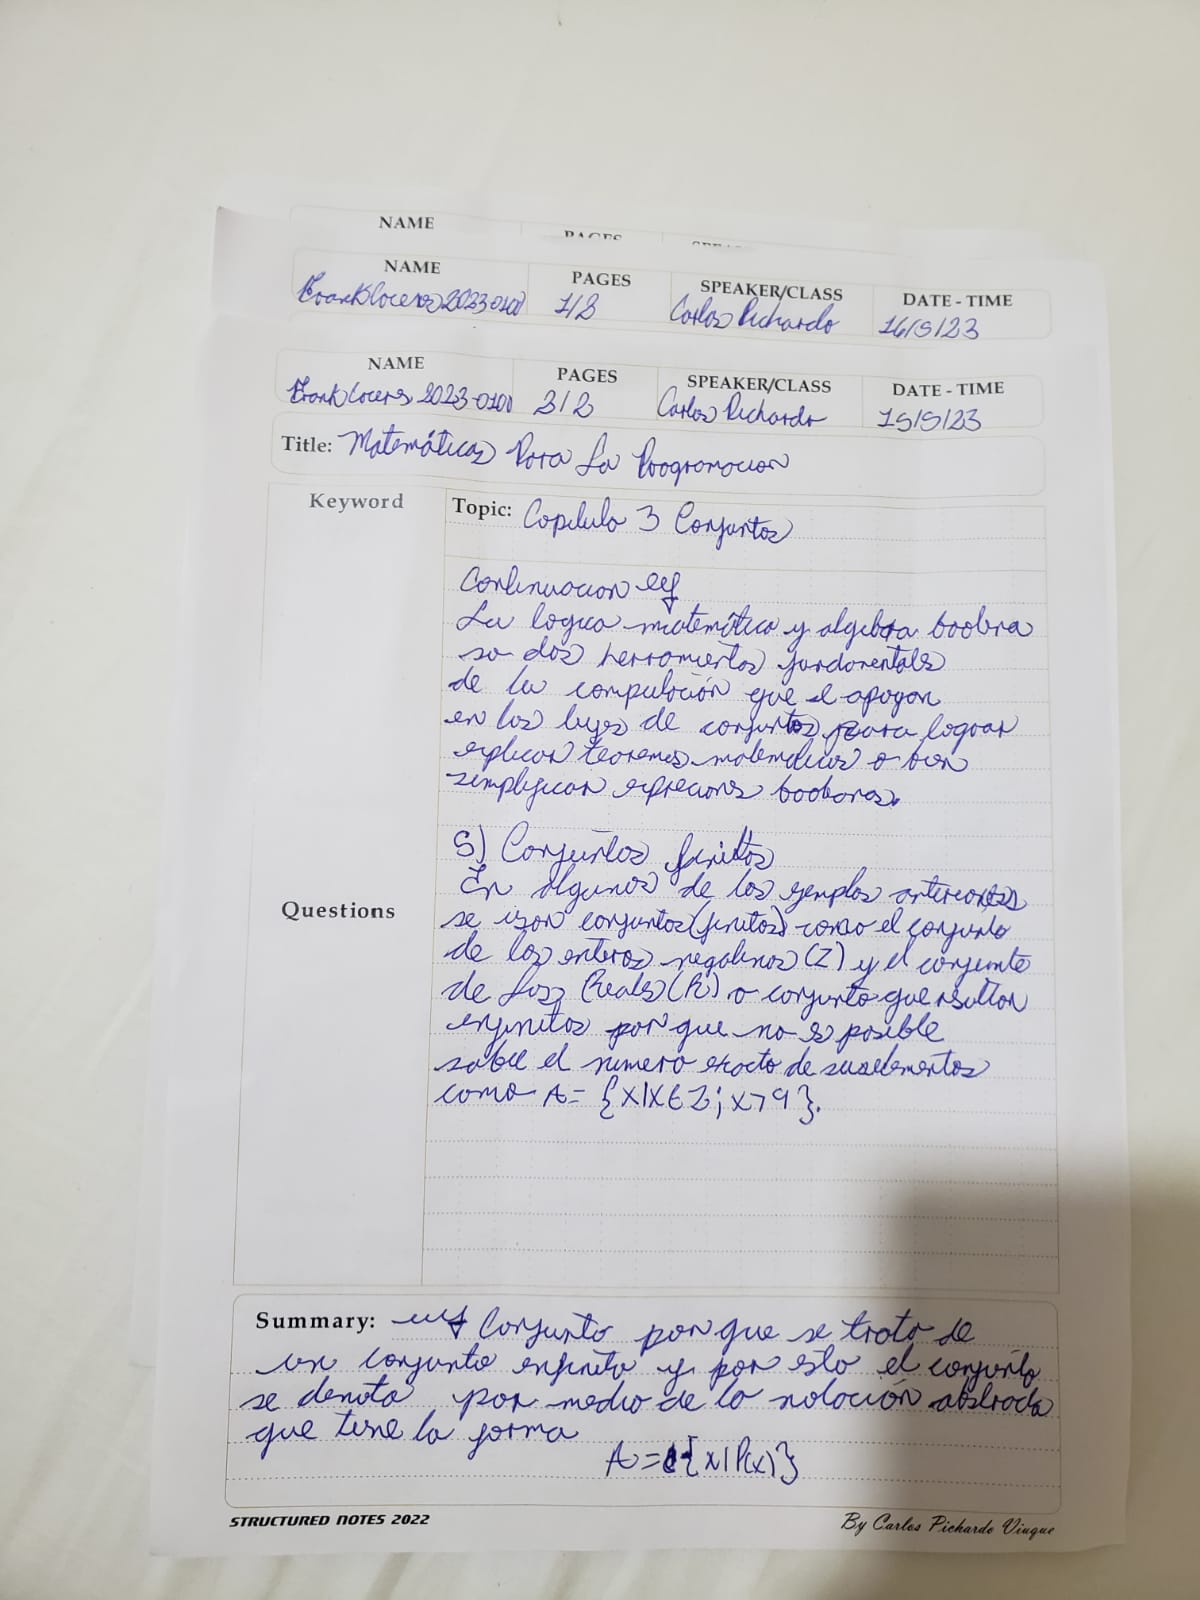 NAME
PAGES
NAME
PAGES
SPEAKER/CLASS
DATE - TIME
2023-0100
1/2
Carlos Pichardo
16/5/23
NAME
PAGES
SPEAKER/CLASS
DATE - TIME
Frank 2023-0100
2/2
Carlos Pichardo
15/5/23
Title: Matemáticas Para La Programacion
Keyword
Topic: Capitulo 3 Conjuntos
Continuacion
La logica matemática y algebra boobra
so dos herramientas fundamentales
de la computación que se apoyan
en las leyes de conjuntos para lograr
esplicar teoremas matematicos o bien
simplificar expreciones boobanas.
5) Conjuntos finitos
Questions
En algunos de los ejemplos anteriores
se usan conjuntos (finitos) como el conjunto
de los enteros negativos (Z) y el conjunto
de los Reales (R) o conjunto que resultan
infinitos por que no es posible
saber el numero exacto de sus elementos
como A = {x|x∈Z; x>9}.
Summary: Conjunto por que se trata de
un conjunto infinito y por esto el conjunto
se denota por medio de la notación abstracta
que tiene la forma
A = {x|P(x)}
STRUCTURED NOTES 2022
By Carlos Pichardo Viuque